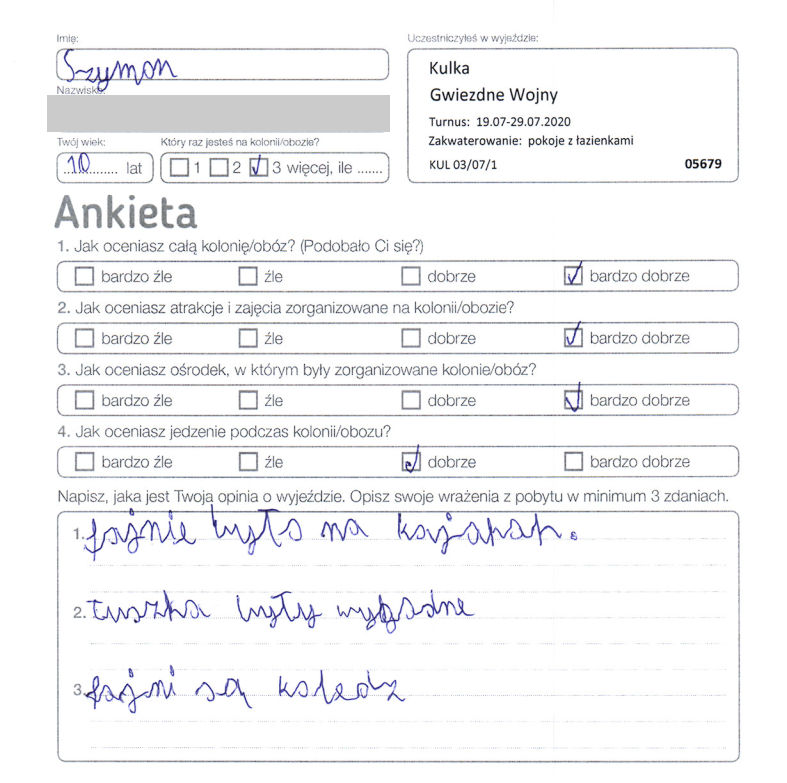 Imię:
Szymon
Nazwisko:
Twój wiek:
10 lat
Który raz jesteś na kolonii/obozie?
1 2 3 więcej, ile .......
Uczestniczyłeś w wyjeździe:
Kulka
Gwiezdne Wojny
Turnus: 19.07-29.07.2020
Zakwaterowanie: pokoje z łazienkami
KUL 03/07/1 05679
Ankieta
1. Jak oceniasz całą kolonię/obóz? (Podobało Ci się?)
bardzo źle źle dobrze bardzo dobrze
2. Jak oceniasz atrakcje i zajęcia zorganizowane na kolonii/obozie?
bardzo źle źle dobrze bardzo dobrze
3. Jak oceniasz ośrodek, w którym były zorganizowane kolonie/obóz?
bardzo źle źle dobrze bardzo dobrze
4. Jak oceniasz jedzenie podczas kolonii/obozu?
bardzo źle źle dobrze bardzo dobrze
Napisz, jaka jest Twoja opinia o wyjeździe. Opisz swoje wrażenia z pobytu w minimum 3 zdaniach.
1. fajnie było na kajakah.
2. łuszka były wygodne
3. fajni są koledz